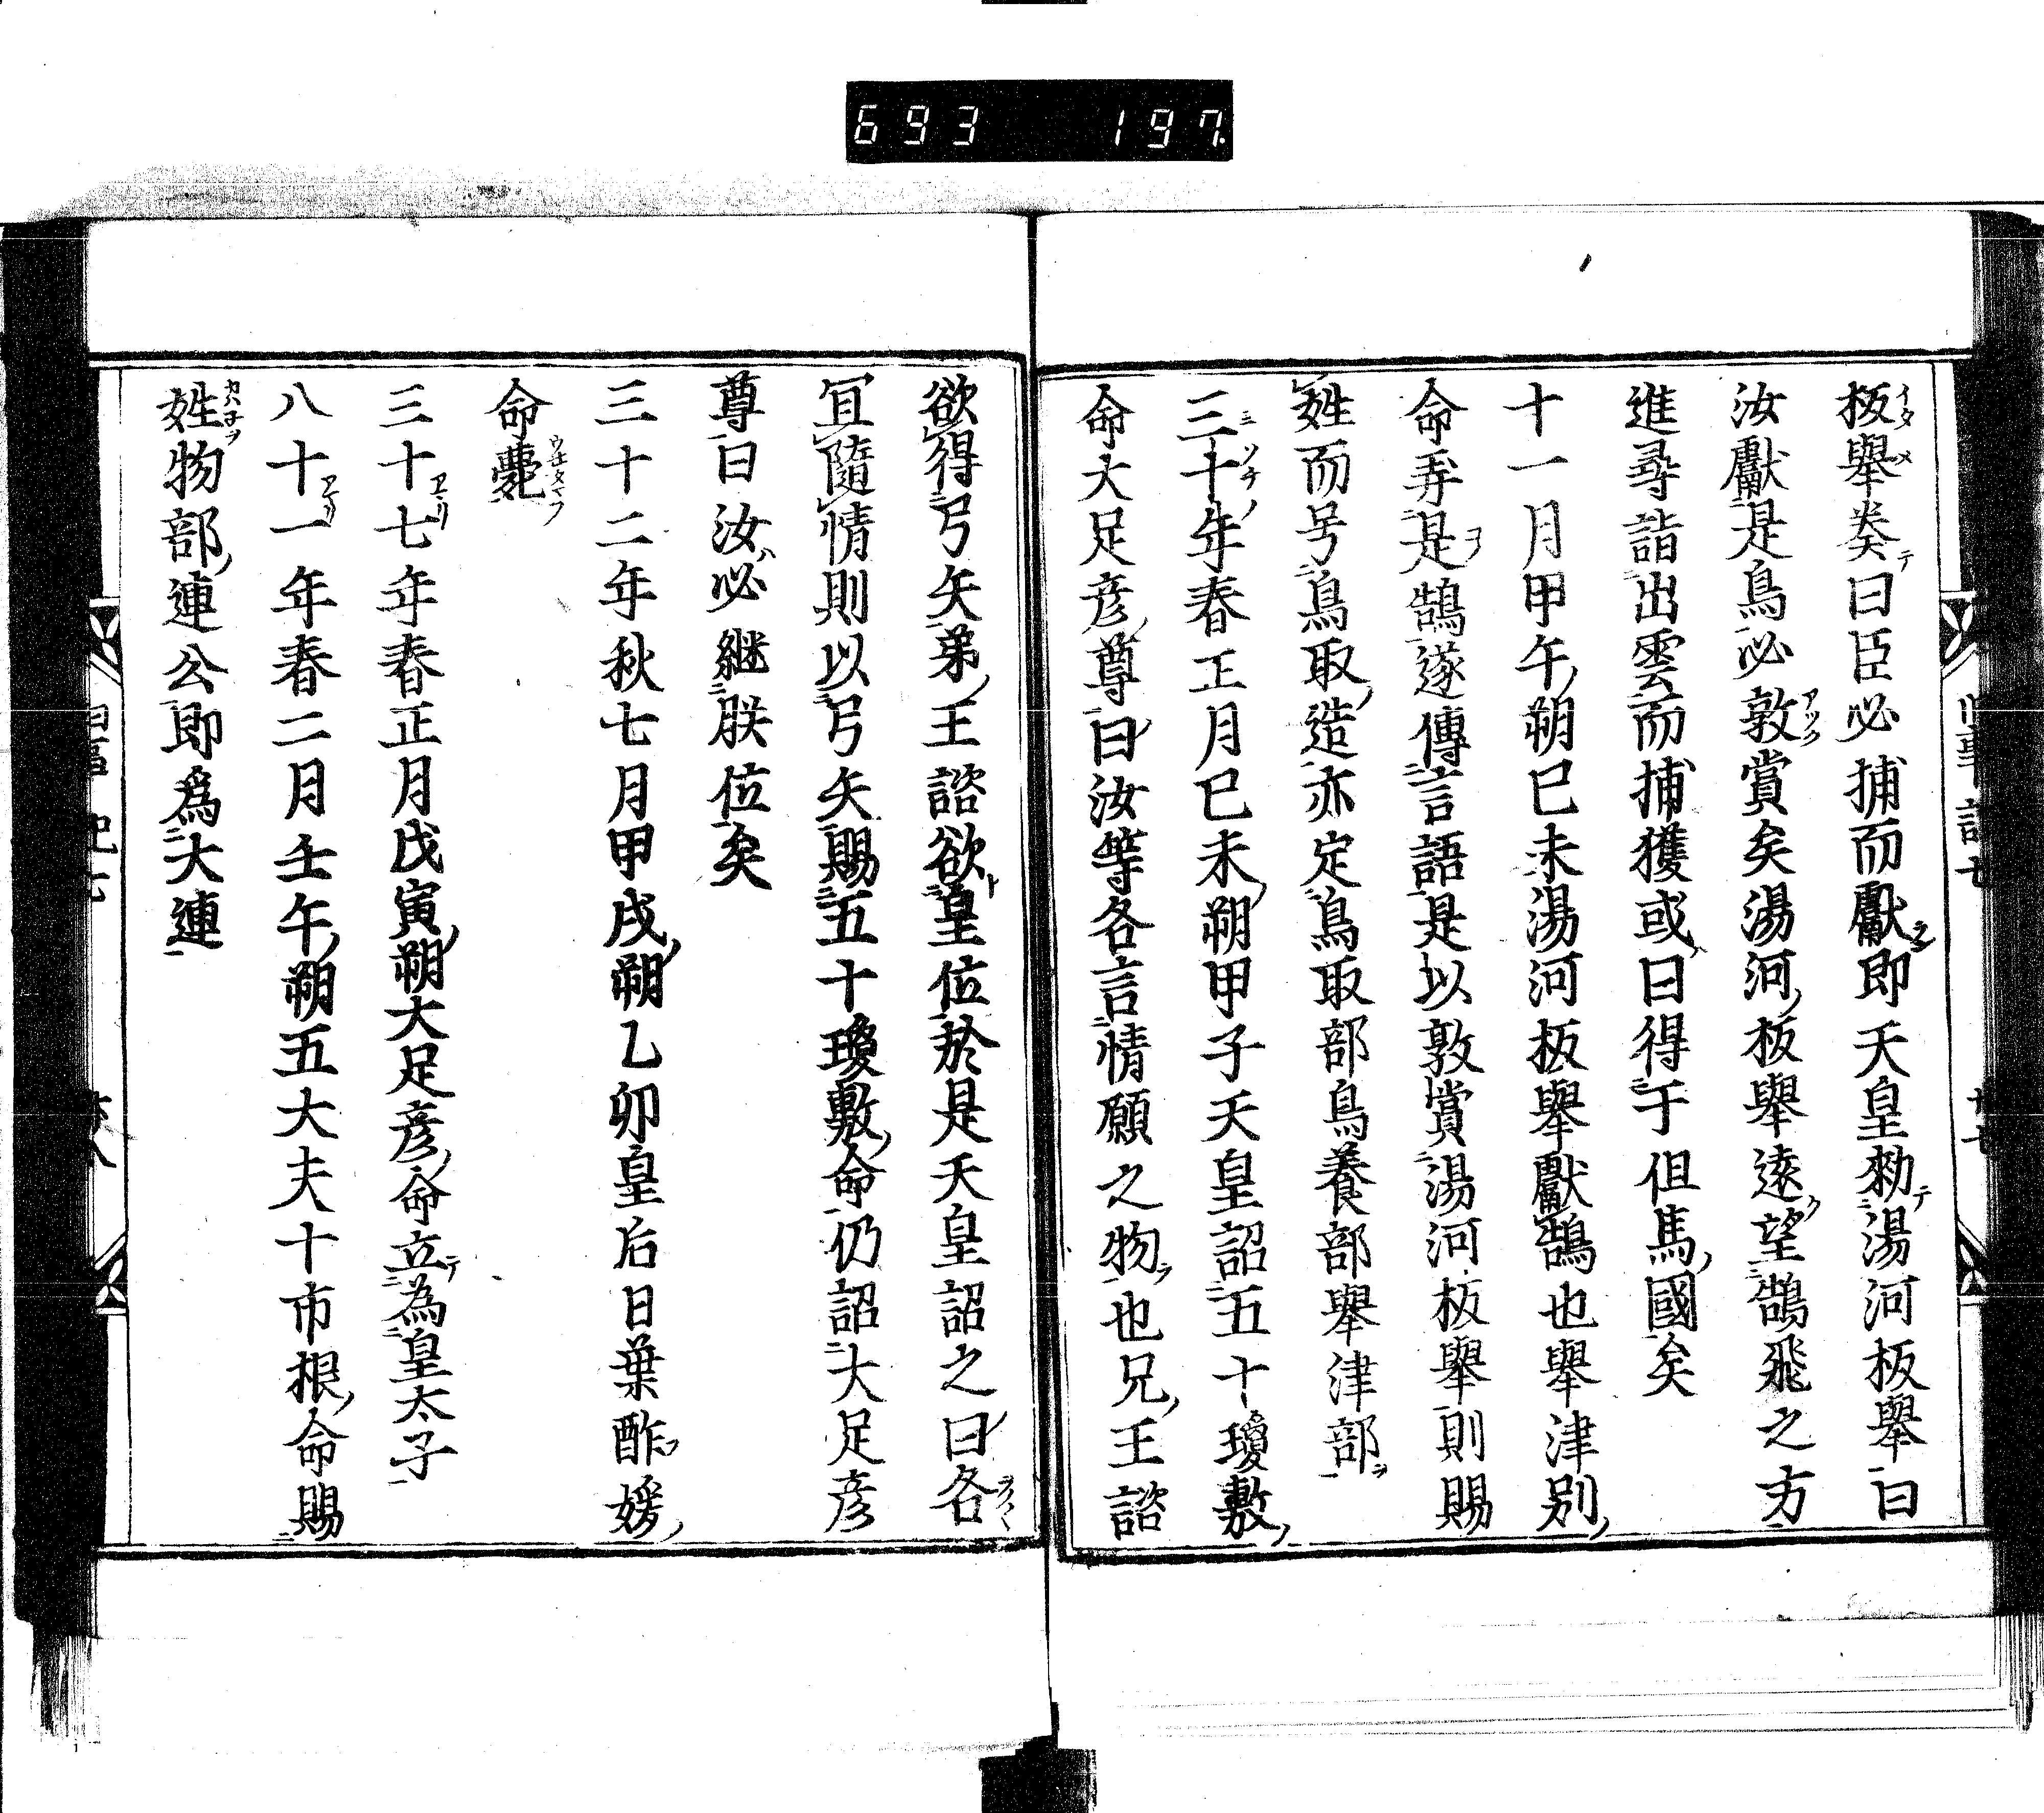 693 197
板舉奏曰臣必捕而獻即天皇勅湯河板舉曰
汝獻是鳥必敦賞矣湯河板舉遠望鵠飛之方
進尋詣出雲而捕獲或曰得于但馬國矣
十一月甲午朔巳未湯河板舉獻鵠也舉津別
命弄是鵠遂傳言語是以敦賞湯河板舉則賜
姓而号鳥取造亦定鳥取部鳥養部舉津部
三十年春正月巳未朔甲子天皇詔五十瓊敷
命大足彦尊曰汝等各言情願之物也兄王諮
欲得弓矢弟王諮欲皇位於是天皇詔之曰各
宜隨情則以弓矢賜五十瓊敷命仍詔大足彦
尊曰汝必継朕位矣
三十二年秋七月甲戌朔乙卯皇后日葉酢媛
命薨
三十七年春正月戊寅朔大足彦命立為皇太子
八十一年春二月壬午朔五大夫十市根命賜
姓物部連公即爲大連